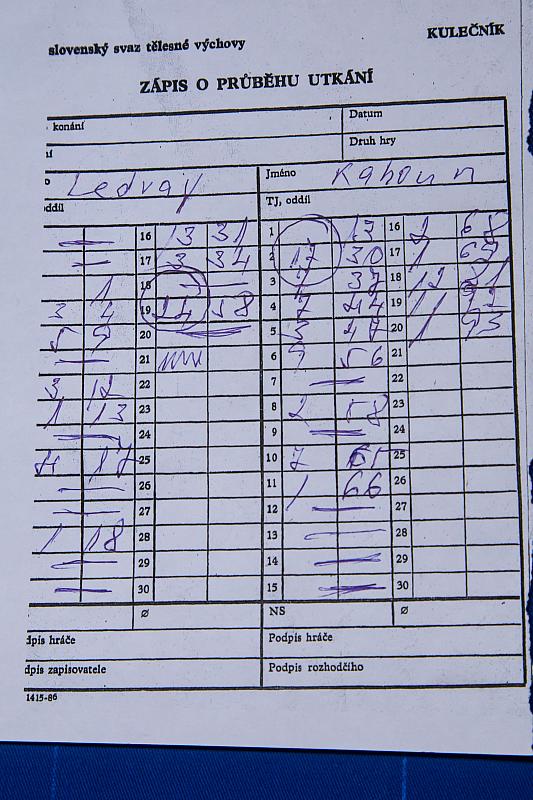 slovenský svaz tělesné výchovy KULEČNÍK
ZÁPIS O PRŮBĚHU UTKÁNÍ
konání Datum
Druh hry
Ledvay Jméno Kahoun
oddíl TJ, oddíl
16 13 31 1 13 16 2 68
17 3 34 2 17 30 17 1 69
1 18 3 7 37 18 12 81
3 4 19 24 58 4 7 44 19 11 92
5 9 20 5 3 47 20 1 93
21 6 9 56 21
3 12 22 7 22
1 13 23 8 2 58 23
24 9 24
4 17 25 10 7 65 25
26 11 1 66 26
27 12 27
1 18 28 13 28
29 14 29
30 15 30
Ø NS Ø
dpis hráče Podpis hráče
dpis zapisovatele Podpis rozhodčího
1415-86